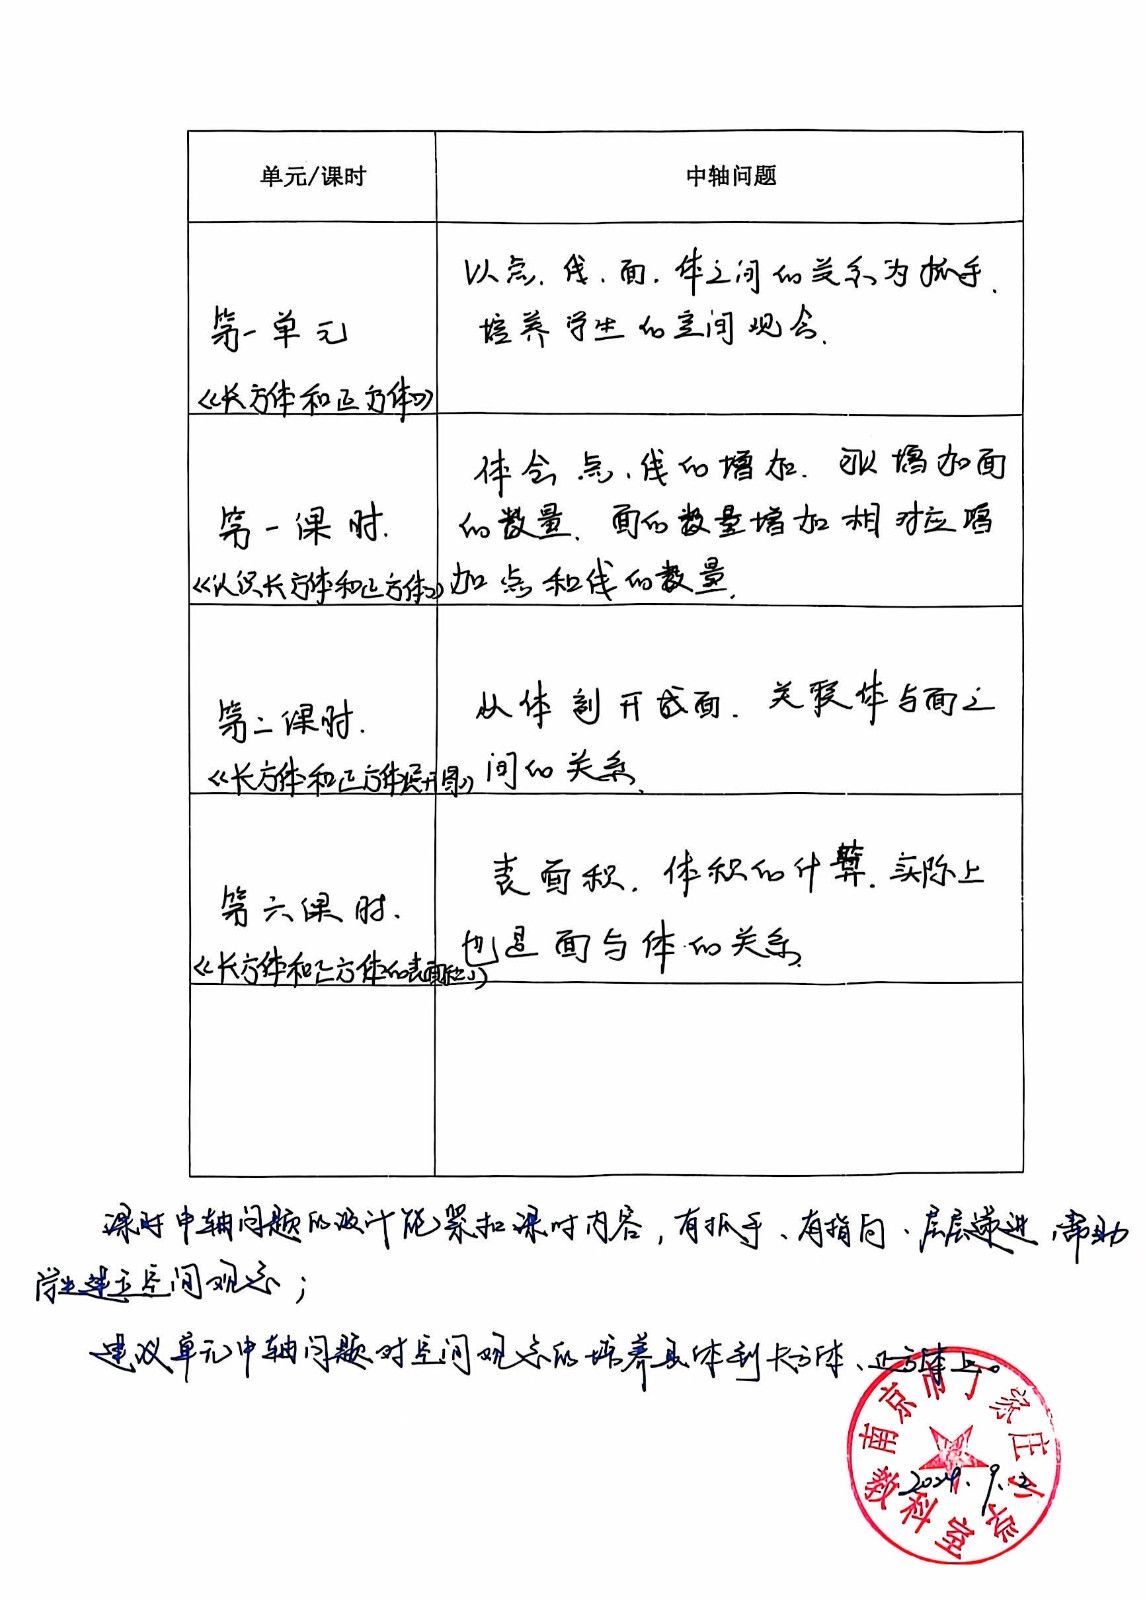 单元/课时
中轴问题
第一单元
《长方体和正方体》
以点、线、面、体之间的关系为抓手.
培养学生的空间观念.
第一课时.
《认识长方体和正方体》
体会点、线的增加. 可以增加面
的数量. 面的数量增加相对应增
加点和线的数量.
第二课时.
《长方体和正方体展开图》
从体剖开成面. 关联体与面之
间的关系.
第六课时.
《长方体和正方体的表面积》
表面积. 体积的计算. 实际上
也是面与体的关系.
课时中轴问题的设计能紧扣课时内容，有抓手、有指向、层层递进，帮助
学生建立空间观念；
建议单元中轴问题对空间观念的培养具体到长方体、正方体上。
南京市丁家庄小学
教科室
2024.9.2